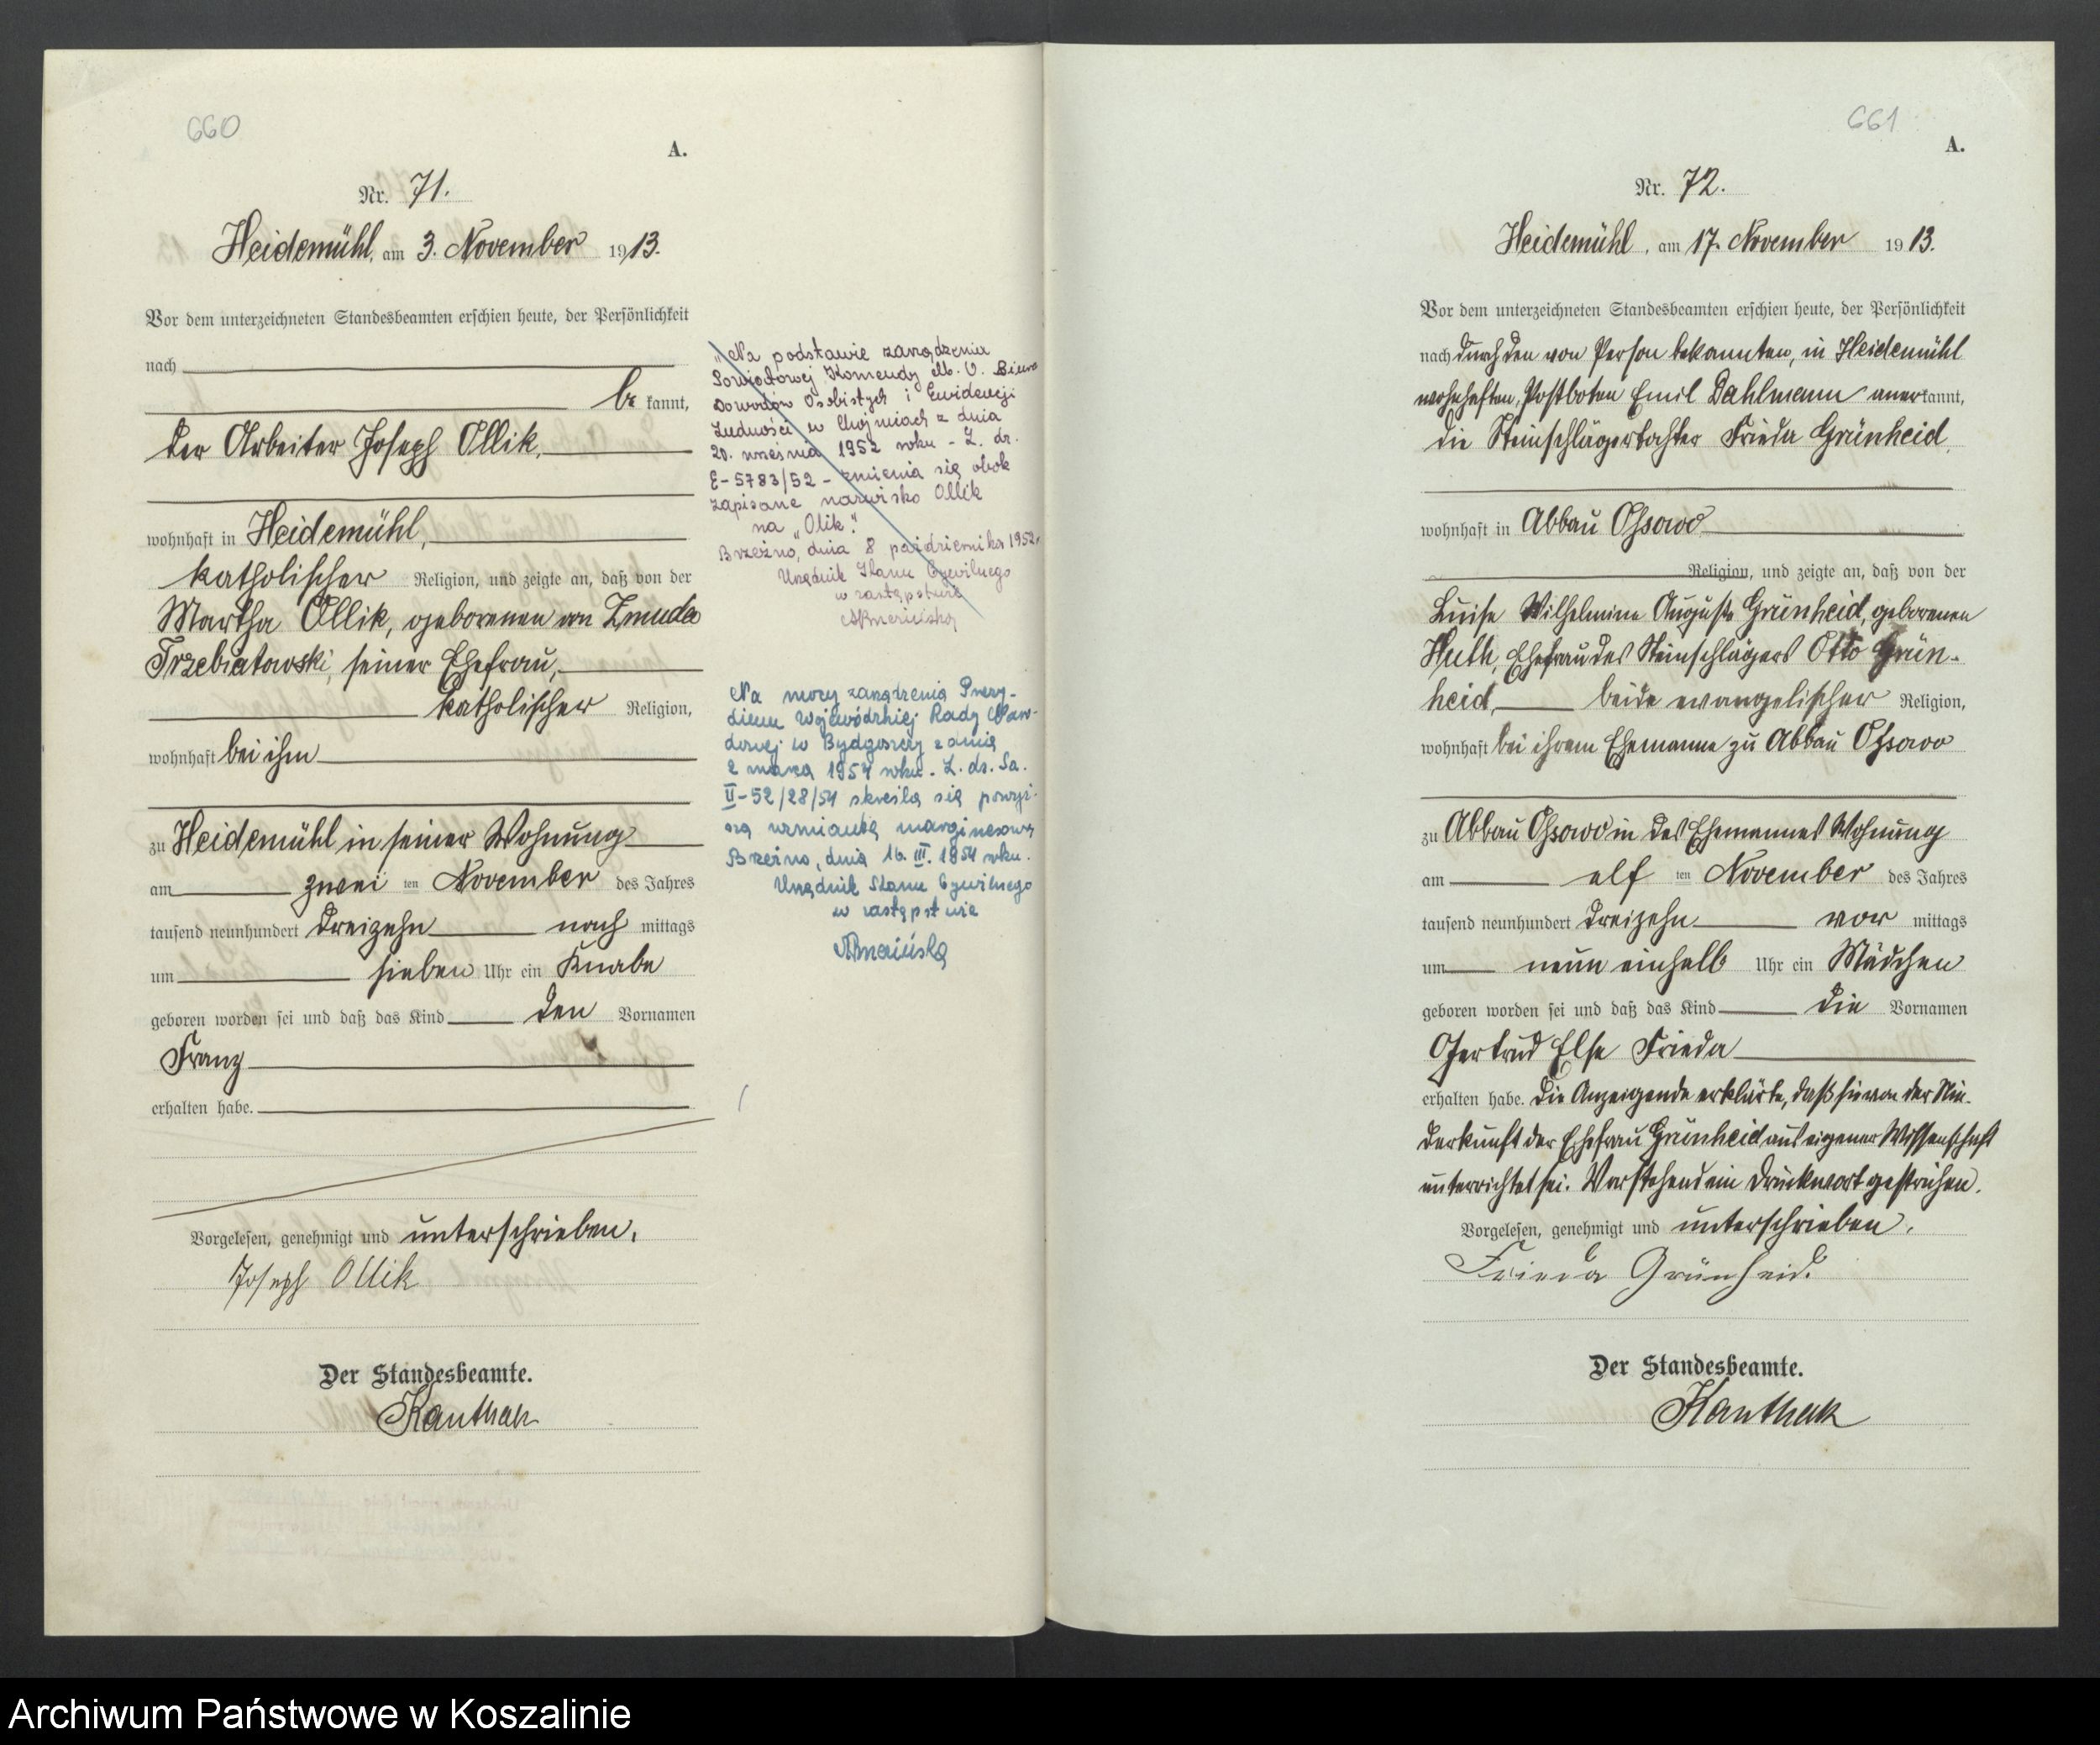 660
A.
Nr. 71.
Heidemühl, am 3. November 1913.
Vor dem unterzeichneten Standesbeamten erschien heute, der Persönlichkeit
nach
be kannt,
der Arbeiter Joseph Ollik,
wohnhaft in Heidemühl,
katholischer Religion, und zeigte an, daß von der
Martha Ollik, geborenen von Zmuda
Trzebiatowski, seiner Ehefrau,
katholischer Religion,
wohnhaft bei ihm
zu Heidemühl in seiner Wohnung
am zwei ten November des Jahres
tausend neunhundert dreizehn nach mittags
um sieben Uhr ein Knabe
geboren worden sei und daß das Kind den Vornamen
Franz
erhalten habe.
Vorgelesen, genehmigt und unterschrieben.
Joseph Ollik
Der Standesbeamte.
Kanthak
"Na podstawie zarządzenia
Powiatowej Komendy M.O. Biura
Dowodów Osobistych i Ewidencji
Ludności w Chojnicach z dnia
20. września 1952 roku - L. dz.
E-5783/52 - zmienia się obok
zapisane nazwisko Ollik
na "Olik".
Brzeźno, dnia 8 października 1952,
Urzędnik Stanu Cywilnego
w zastępstwie
Na mocy zarządzenia Prezy-
dium Wojewódzkiej Rady Naro-
dowej w Bydgoszczy z dnia
2 marca 1954 roku - L. dz. Sa.
II-52/28/54 skreśla się powyż-
szą wzmiankę marginesową
Brzeźno, dnia 16. III. 1954 roku.
Urzędnik Stanu Cywilnego
w zastępstwie
661
A.
Nr. 72.
Heidemühl, am 17. November 1913.
Vor dem unterzeichneten Standesbeamten erschien heute, der Persönlichkeit
nach durch den von Person bekannten, in Heidemühl
wohnhaften, Postboten Emil Dahlmann anerkannt,
die Steinschlägertochter Frieda Grünheid,
wohnhaft in Abbau Ossowo
Religion, und zeigte an, daß von der
Luise Wilhelmine Auguste Grünheid, geborenen
Huth, Ehefrau des Steinschlägers Otto Grün-
heid, beide evangelischer Religion,
wohnhaft bei ihrem Ehemanne zu Abbau Ossowo
zu Abbau Ossowo in des Ehemannes Wohnung
am elf ten November des Jahres
tausend neunhundert dreizehn vor mittags
um neun einhalb Uhr ein Mädchen
geboren worden sei und daß das Kind die Vornamen
Gertrud Else Frieda
erhalten habe. Die Anzeigende erklärte, daß sie von der Nie-
derkunft der Ehefrau Grünheid aus eigener Wissenschaft
unterrichtet sei. Vorstehend ein Druckwort gestrichen.
Vorgelesen, genehmigt und unterschrieben.
Frieda Grünheid.
Der Standesbeamte.
Kanthak
Archiwum Państwowe w Koszalinie